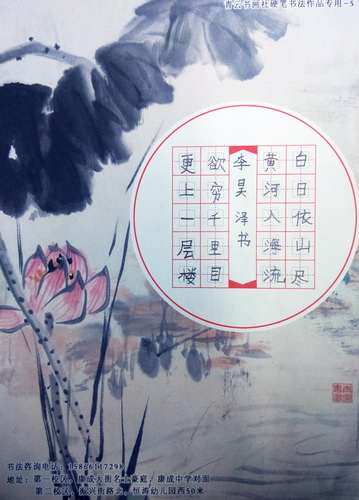 青云书画社硬笔书法作品专用-5
白日依山尽
黄河入海流
李昊泽书
欲穷千里目
更上一层楼
书法咨询电话：15866117298
地址：第一校区：康成大街名士豪庭、康成中学对面
第二校区：振兴街路北、恒涛幼儿园西50米